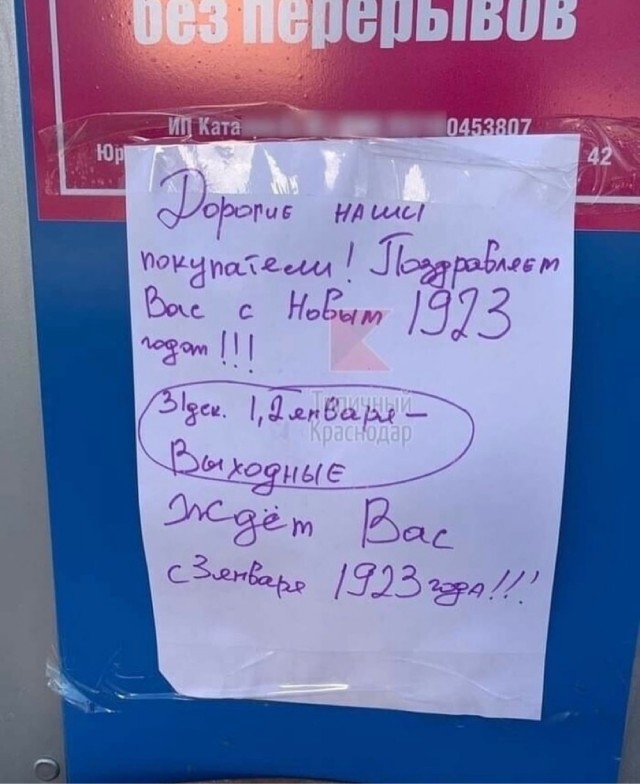 без перерывов
ИП Ката
0453807
Юр
42
Дорогие наши
покупатели! Поздравляет
Вас с Новым 1923
годом!!!
31дек. 1,2января –
Выходные
Ждёт Вас
с 3января 1923года!!!
Типичный
Краснодар